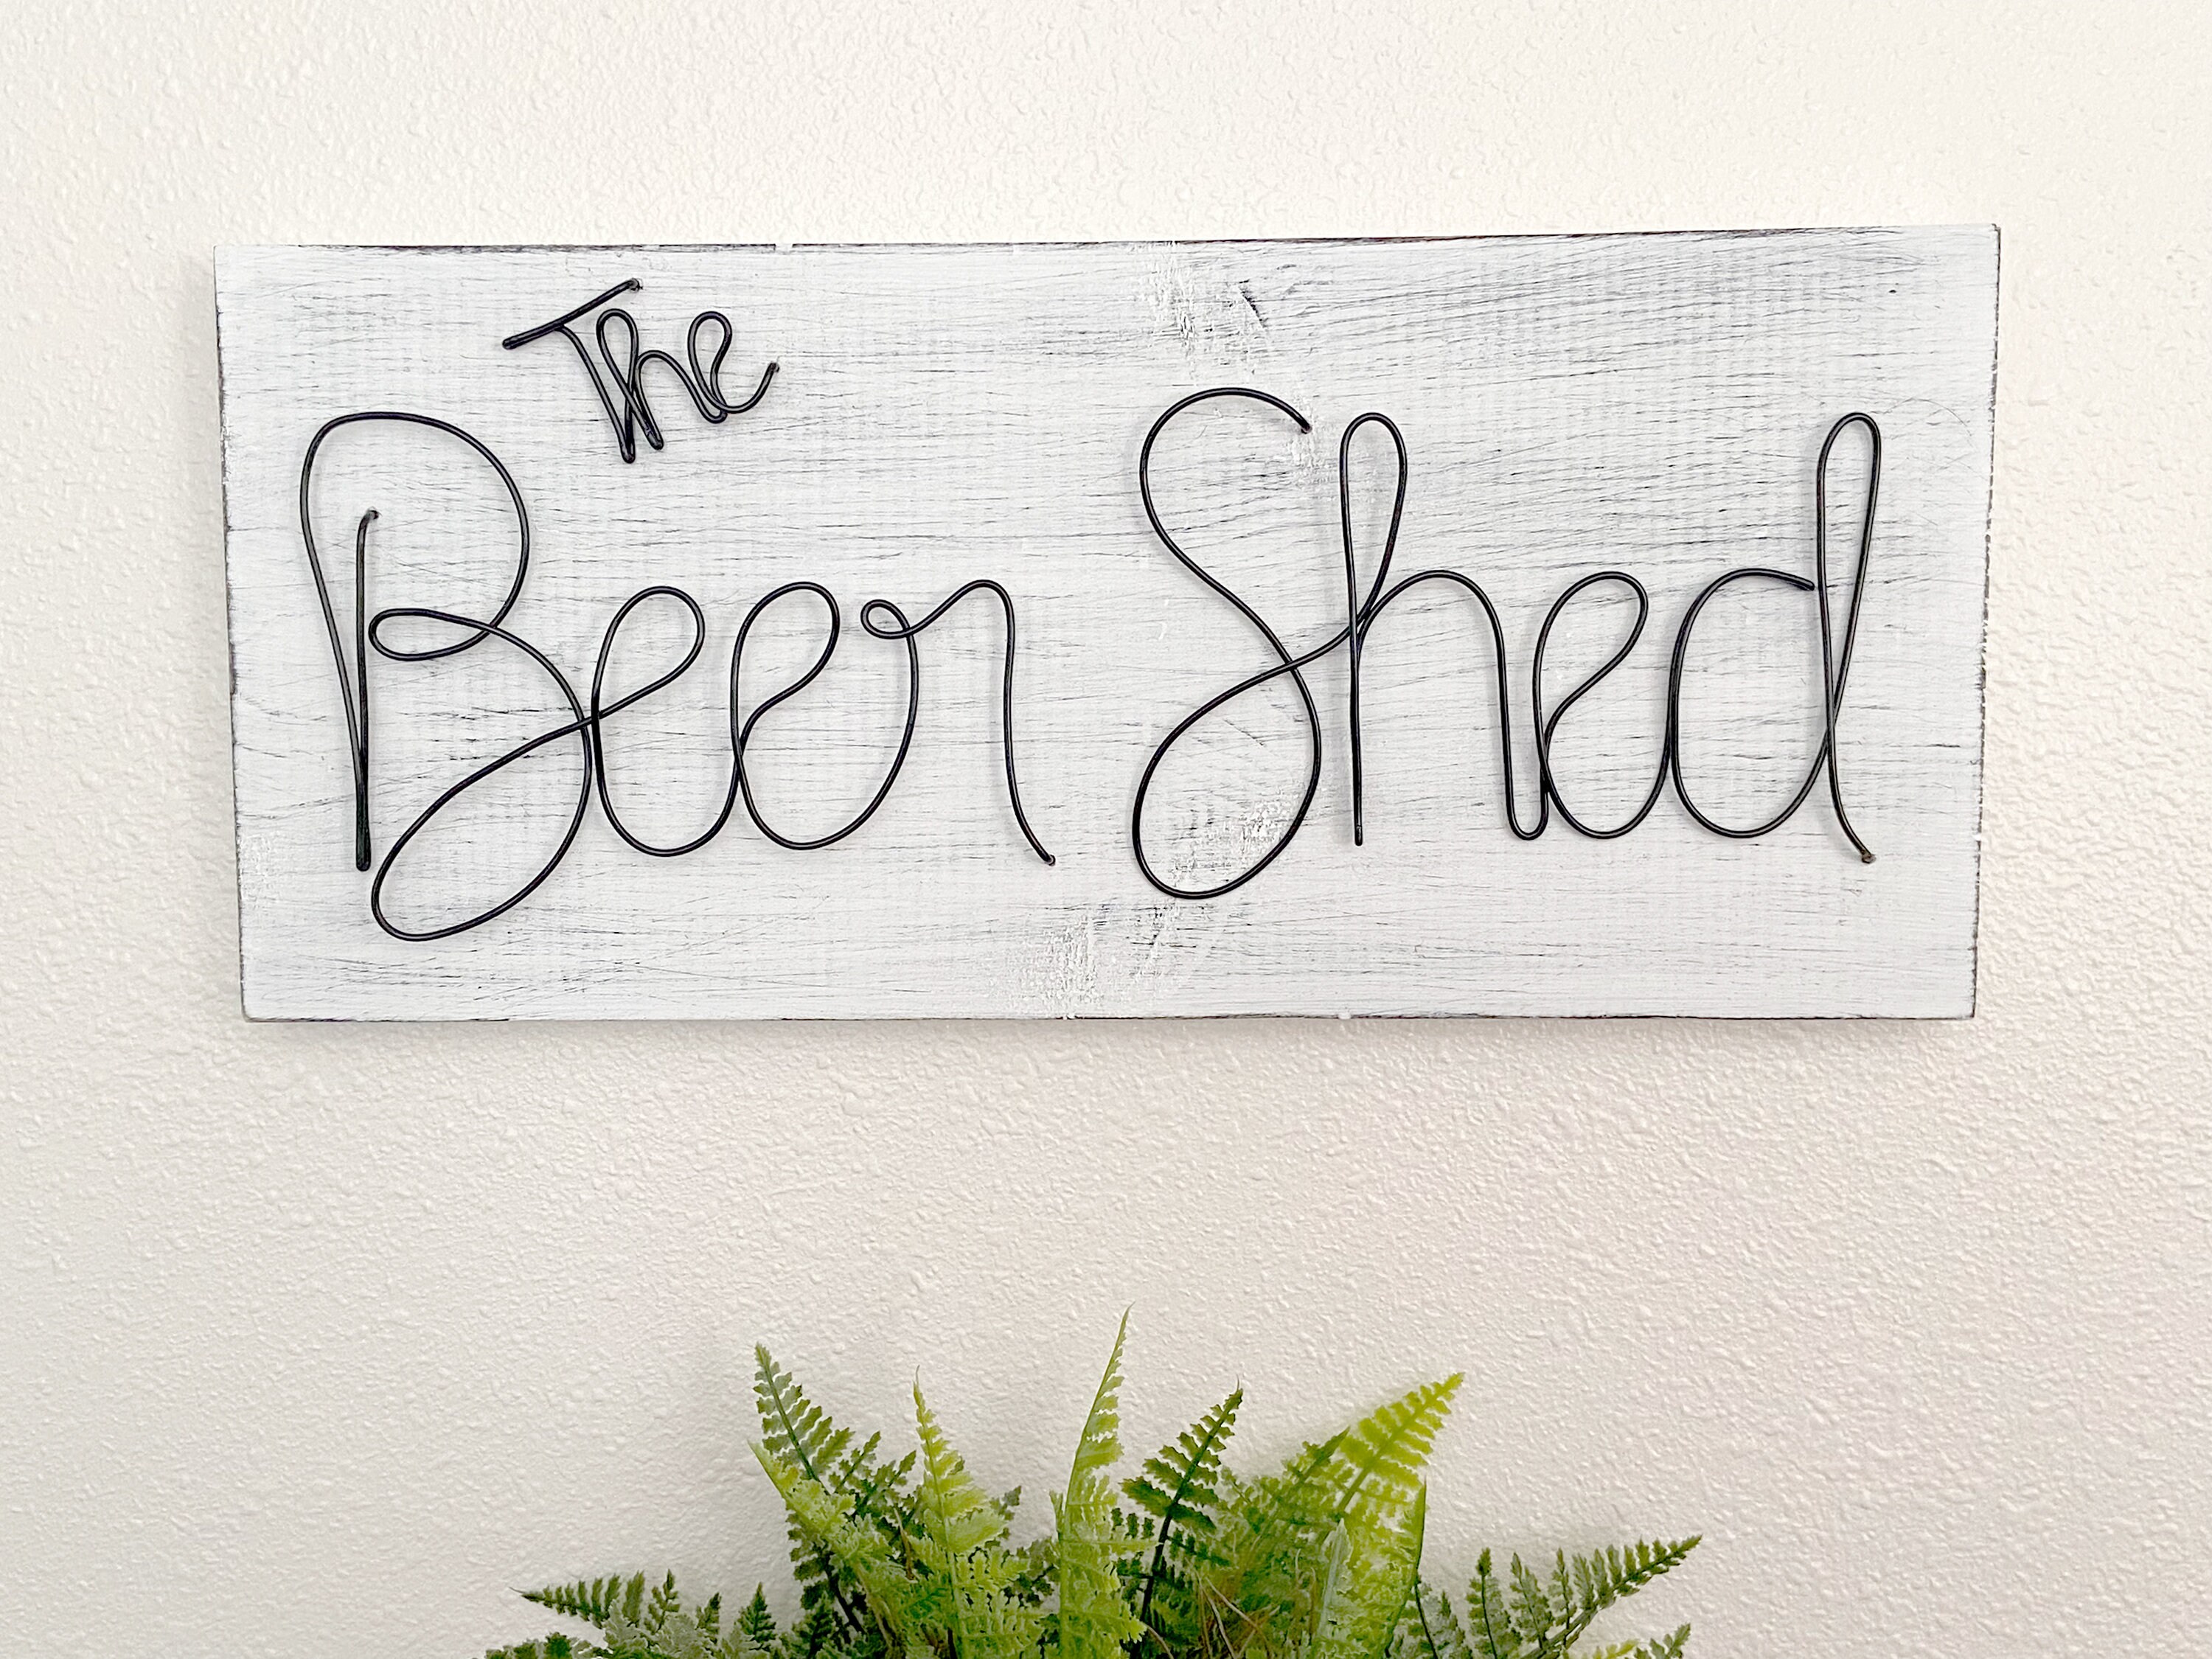 The
Beer Shed